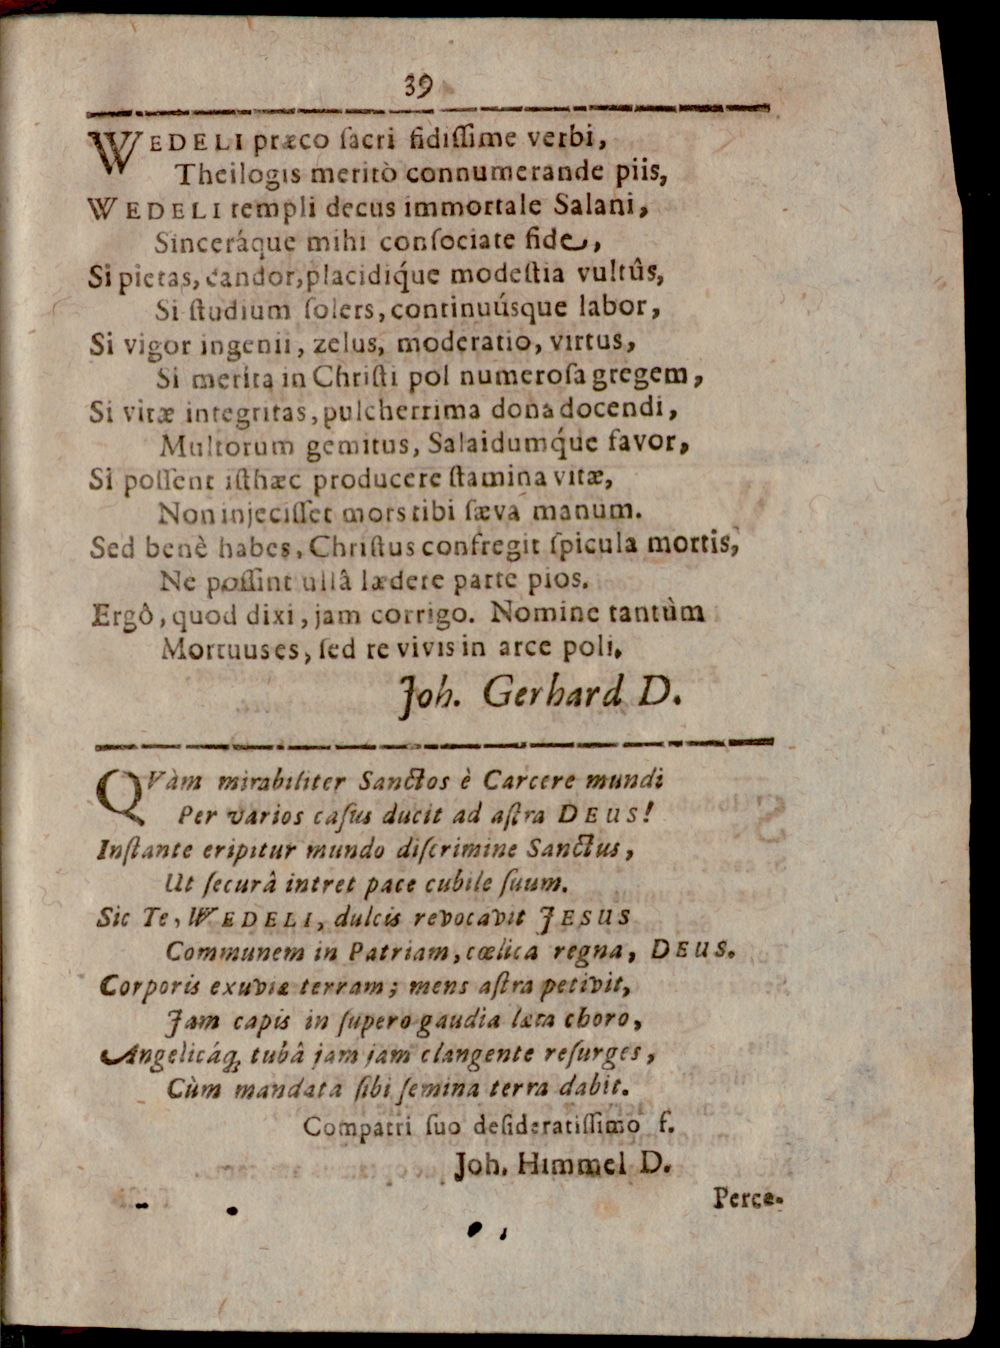 39
WEDELI præco ſacri fidiſſime verbi,
Theilogis meritò connumerande piis,
WEDELI templi decus immortale Salani,
Sinceráque mihi conſociate fide,
Si pietas, candor, placidiq́ue modeſtia vultûs,
Si ſtudium ſolers, continuúsque labor,
Si vigor ingenii, zelus, moderatio, virtus,
Si merita in Chriſti pol numeroſa gregem,
Si vitæ integritas, pulcherrima dona docendi,
Multorum gemitus, Salaidumq́ue favor,
Si poſſent iſthæc producere ſtamina vitæ,
Non injeciſſet mors tibi ſæva manum.
Sed benè habes, Chriſtus confregit ſpicula mortis,
Ne poſſint ullâ lædere parte pios.
Ergô, quod dixi, jam corrigo. Nomine tantùm
Mortuus es, ſed re vivis in arce poli.
Joh. Gerhard D.
QVàm mirabiliter Sanctos è Carcere mundi
Per varios caſus ducit ad aſtra DEUS!
Inſtante eripitur mundo diſcrimine Sanctus,
Ut ſecurâ intret pace cubile ſuum.
Sic Te, WEDELI, dulcis revocavit JESUS
Communem in Patriam, cœlica regna, DEUS.
Corporis exuviæ terram; mens aſtra petivit,
Jam capis in ſupero gaudia læta choro,
Angelicáq; tubâ jam jam clangente reſurges,
Cùm mandata ſibi ſemina terra dabit.
Compatri ſuo deſideratiſſimo f.
Joh. Himmel D.
Perce-